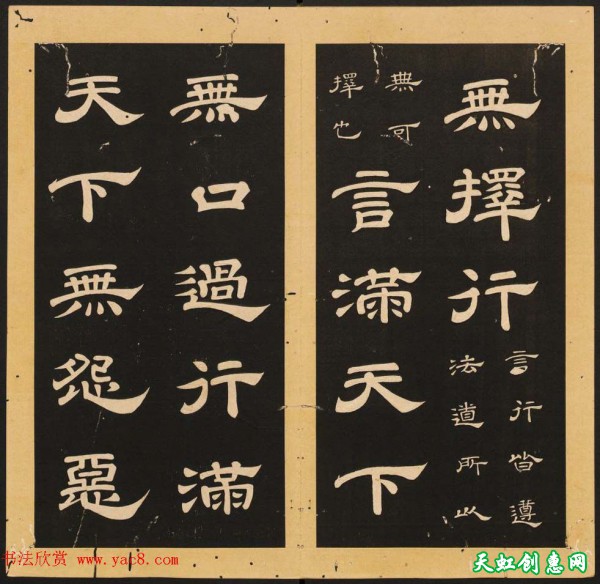 無擇行
言行皆遵
法道所以
無可
擇也
言滿天下
無口過行滿
天下無怨惡
书法欣赏 www.yac8.com
天虹创惠网